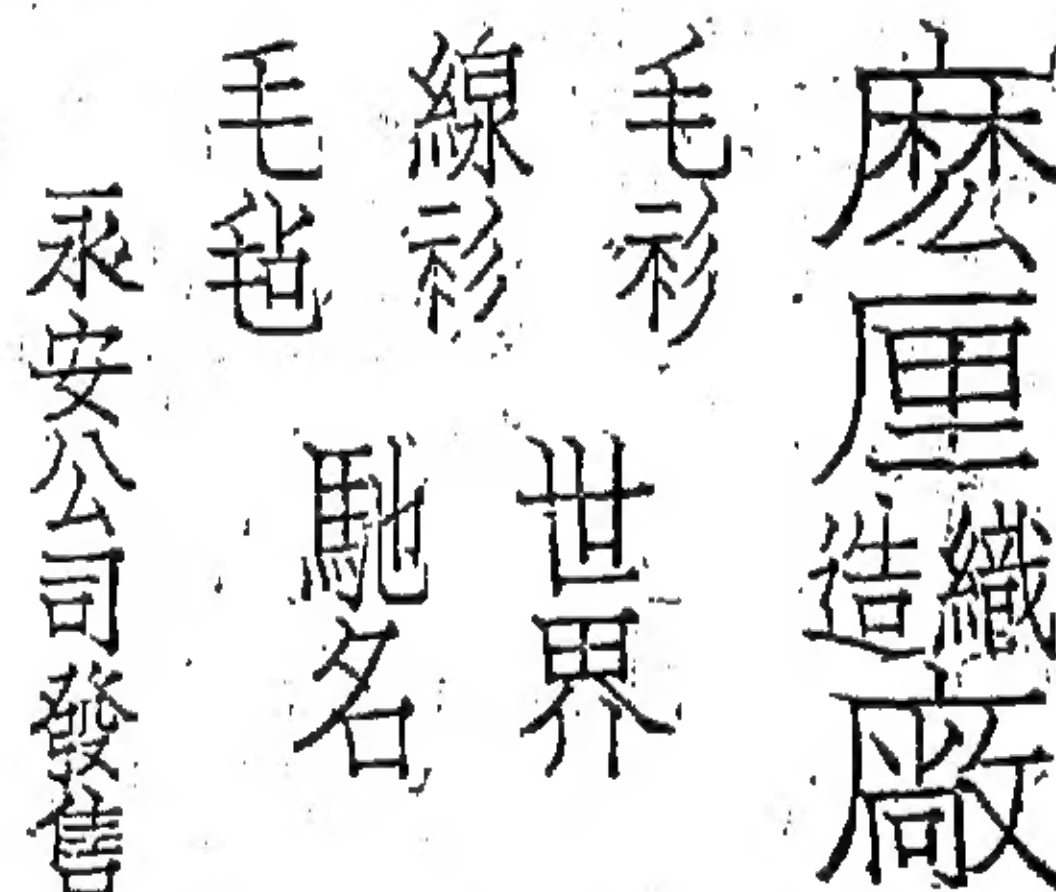 麽厘織造廠
毛衫
線衫
毛毡
世界
馳名
永安公司發售